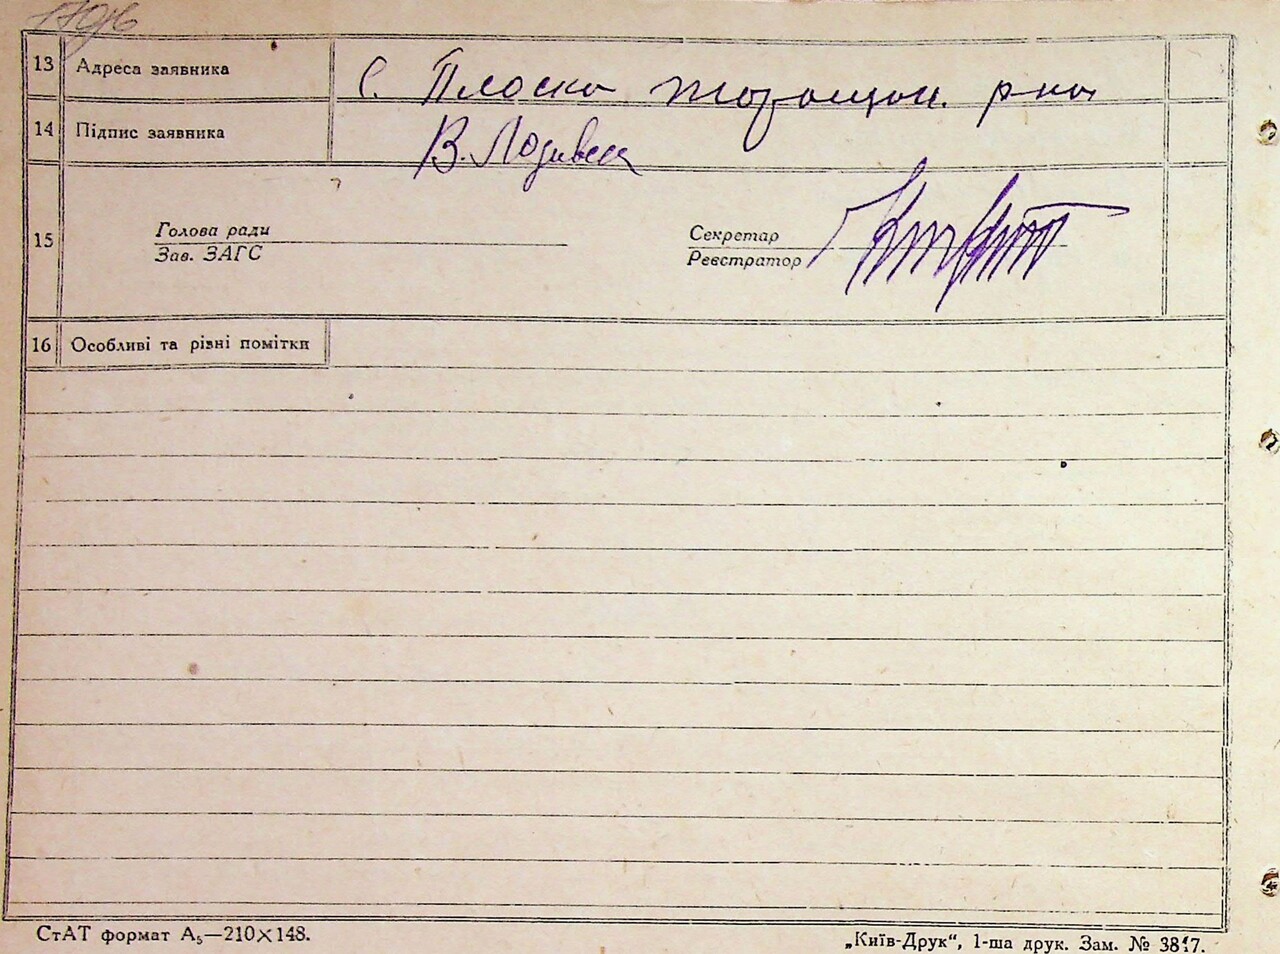 13 Адреса заявника С. Плоска таращан. р-на
14 Підпис заявника В.
15 Голова ради
Зав. ЗАГС
Секретар
Реєстратор
16 Особливі та різні помітки
СтАТ формат А₅—210×148.
„Київ-Друк“, 1-ша друк. Зам. № 3847.